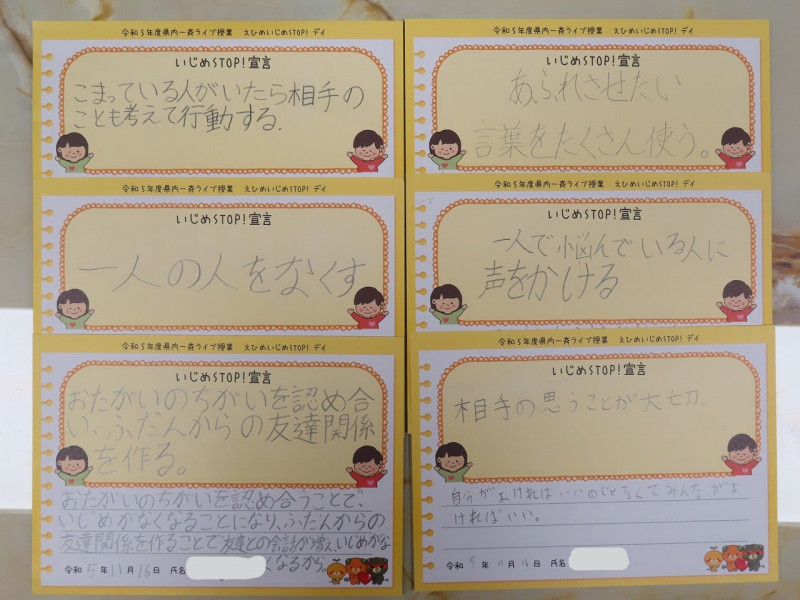 令和5年度県内一斉ライブ授業 えひめいじめSTOP! デイ
いじめSTOP!宣言
こまっている人がいたら相手の
ことも考えて行動する.
令和5年度県内一斉ライブ授業 えひめいじめSTOP! デイ
いじめSTOP!宣言
あふれさせたい
言葉をたくさん使う。
令和5年度県内一斉ライブ授業 えひめいじめSTOP! デイ
いじめSTOP!宣言
一人の人をなくす
令和5年度県内一斉ライブ授業 えひめいじめSTOP! デイ
いじめSTOP!宣言
一人で悩んでいる人に
声をかける
令和5年度県内一斉ライブ授業 えひめいじめSTOP! デイ
いじめSTOP!宣言
おたがいのちがいを認め合
い、ふだんからの友達関係
を作る。
おたがいのちがいを認め合うことで、
いじめがなくなることになり、ふだんからの
友達関係を作ることで友達との会話が増え、いじめがな
くなるから。
令和5年11月16日 氏名
令和5年度県内一斉ライブ授業 えひめいじめSTOP! デイ
いじめSTOP!宣言
相手の思うことが大切。
自分がよければいいのじゃなくてみんながよ
ければいい。
令和5年11月16日 氏名